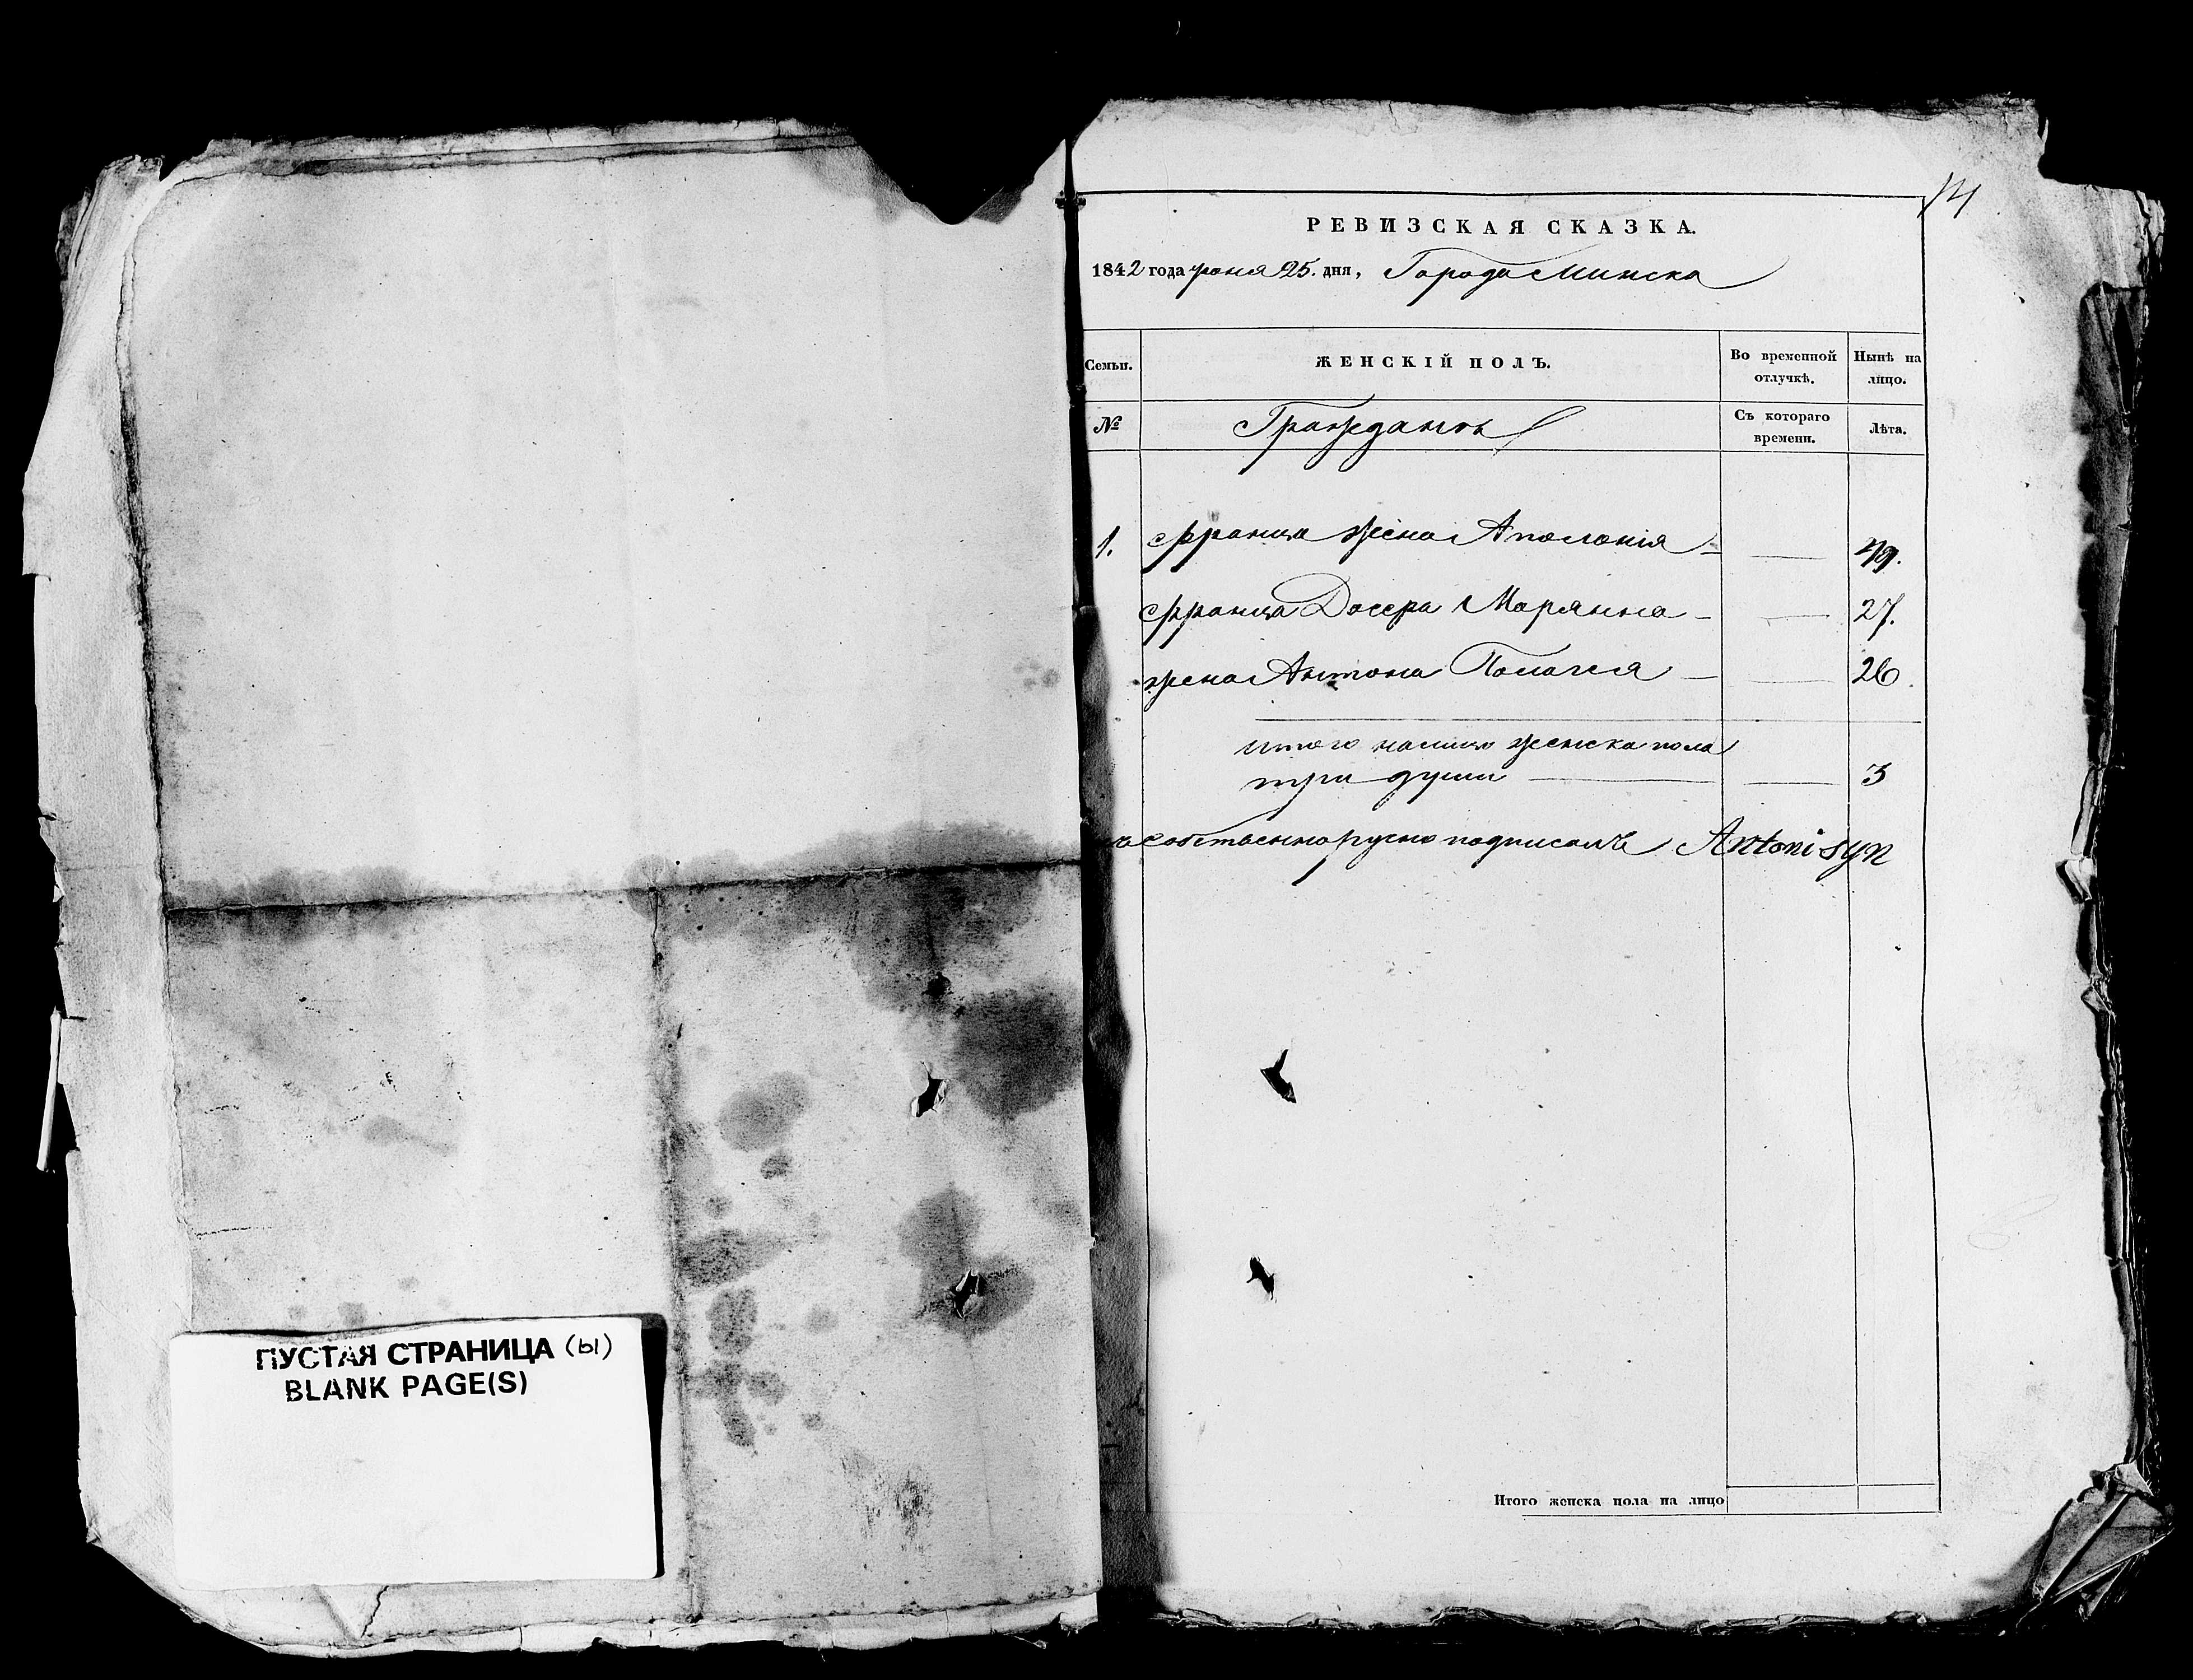 14
РЕВИЗСКАЯ СКАЗКА.
1842 года июня 25. дня, Города Минска
Семьи. ЖЕНСКІЙ ПОЛЪ. Во временной отлучкѣ. Нынѣ на лицо.
№ Гражданъ Съ котораго времени. Лѣта.
1. Франца жена Аполонія — — 49.
Франца Дочера Марянна — — 27.
жена Антона — — 26.
итого налицо женска пола
три души — — 3
собственноручно подписалъ Antoni syn
Итого женска пола на лицо
ПУСТАЯ СТРАНИЦА (Ы)
BLANK PAGE(S)